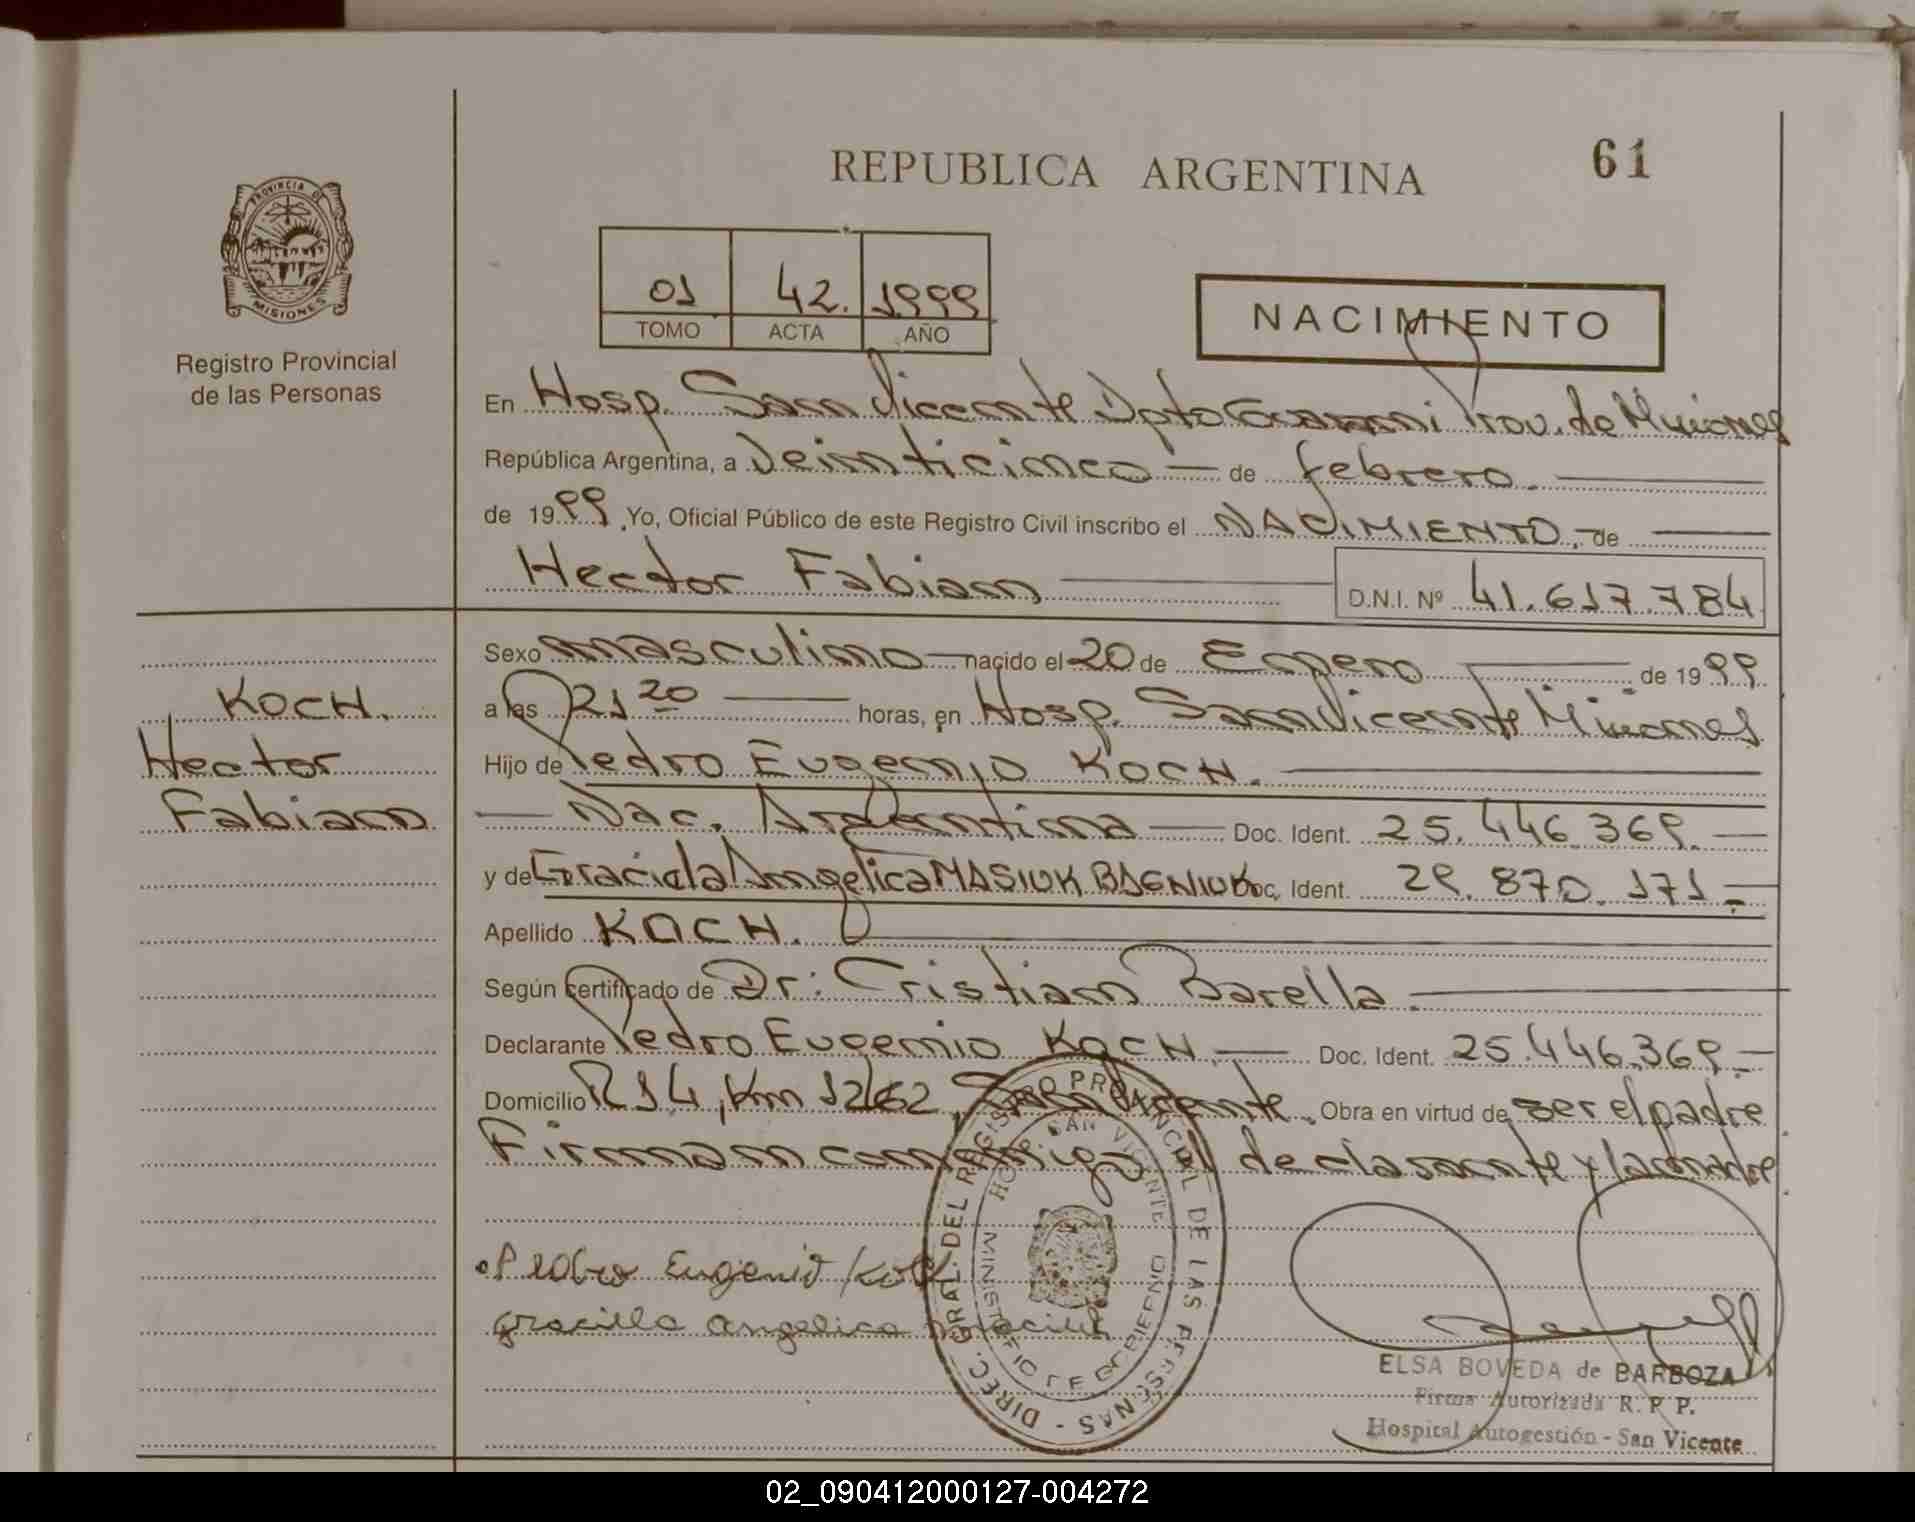 REPUBLICA ARGENTINA
61
PROVINCIA DE
MISIONES
Registro Provincial
de las Personas
01 42. 1999
TOMO ACTA AÑO
NACIMIENTO
En Hosp. San Vicente Dpto Guaraní Prov. de Misiones
República Argentina, a Veinticinco — de febrero.
de 1999 Yo, Oficial Público de este Registro Civil inscribo el NACIMIENTO, de
Hector Fabian
D.N.I. Nº 41.617.784
Sexo masculino nacido el 20 de Enero de 1999
KOCH.
Hector
Fabian
a las 21 20 horas, en Hosp. San Vicente Misiones
Hijo de Pedro Eugenio KOCH.
— Nac. Argentina — Doc. Ident. 25.446.369.—
y de Graciela Angelica MASIUK BAGNIUK Doc. Ident. 29.870.171—
Apellido KOCH.
Según certificado de Dr: Cristian Barella.
Declarante Pedro Eugenio KOCH.— Doc. Ident. 25.446.369.—
Domicilio R14, Km 1262, San Vicente. Obra en virtud de ser el padre
Firman conmigo el declarante y la madre
Pedro Eugenio Koch
graciela angelica
DIREC. GRAL. DEL REGISTRO PROVINCIAL DE LAS PERSONAS -
HOSP. SAN VICENTE
MINISTERIO DE GOBIERNO
ELSA BOVEDA de BARBOZA
Firma Autorizada R. P. P.
Hospital Autogestión - San Vicente
02_090412000127-004272